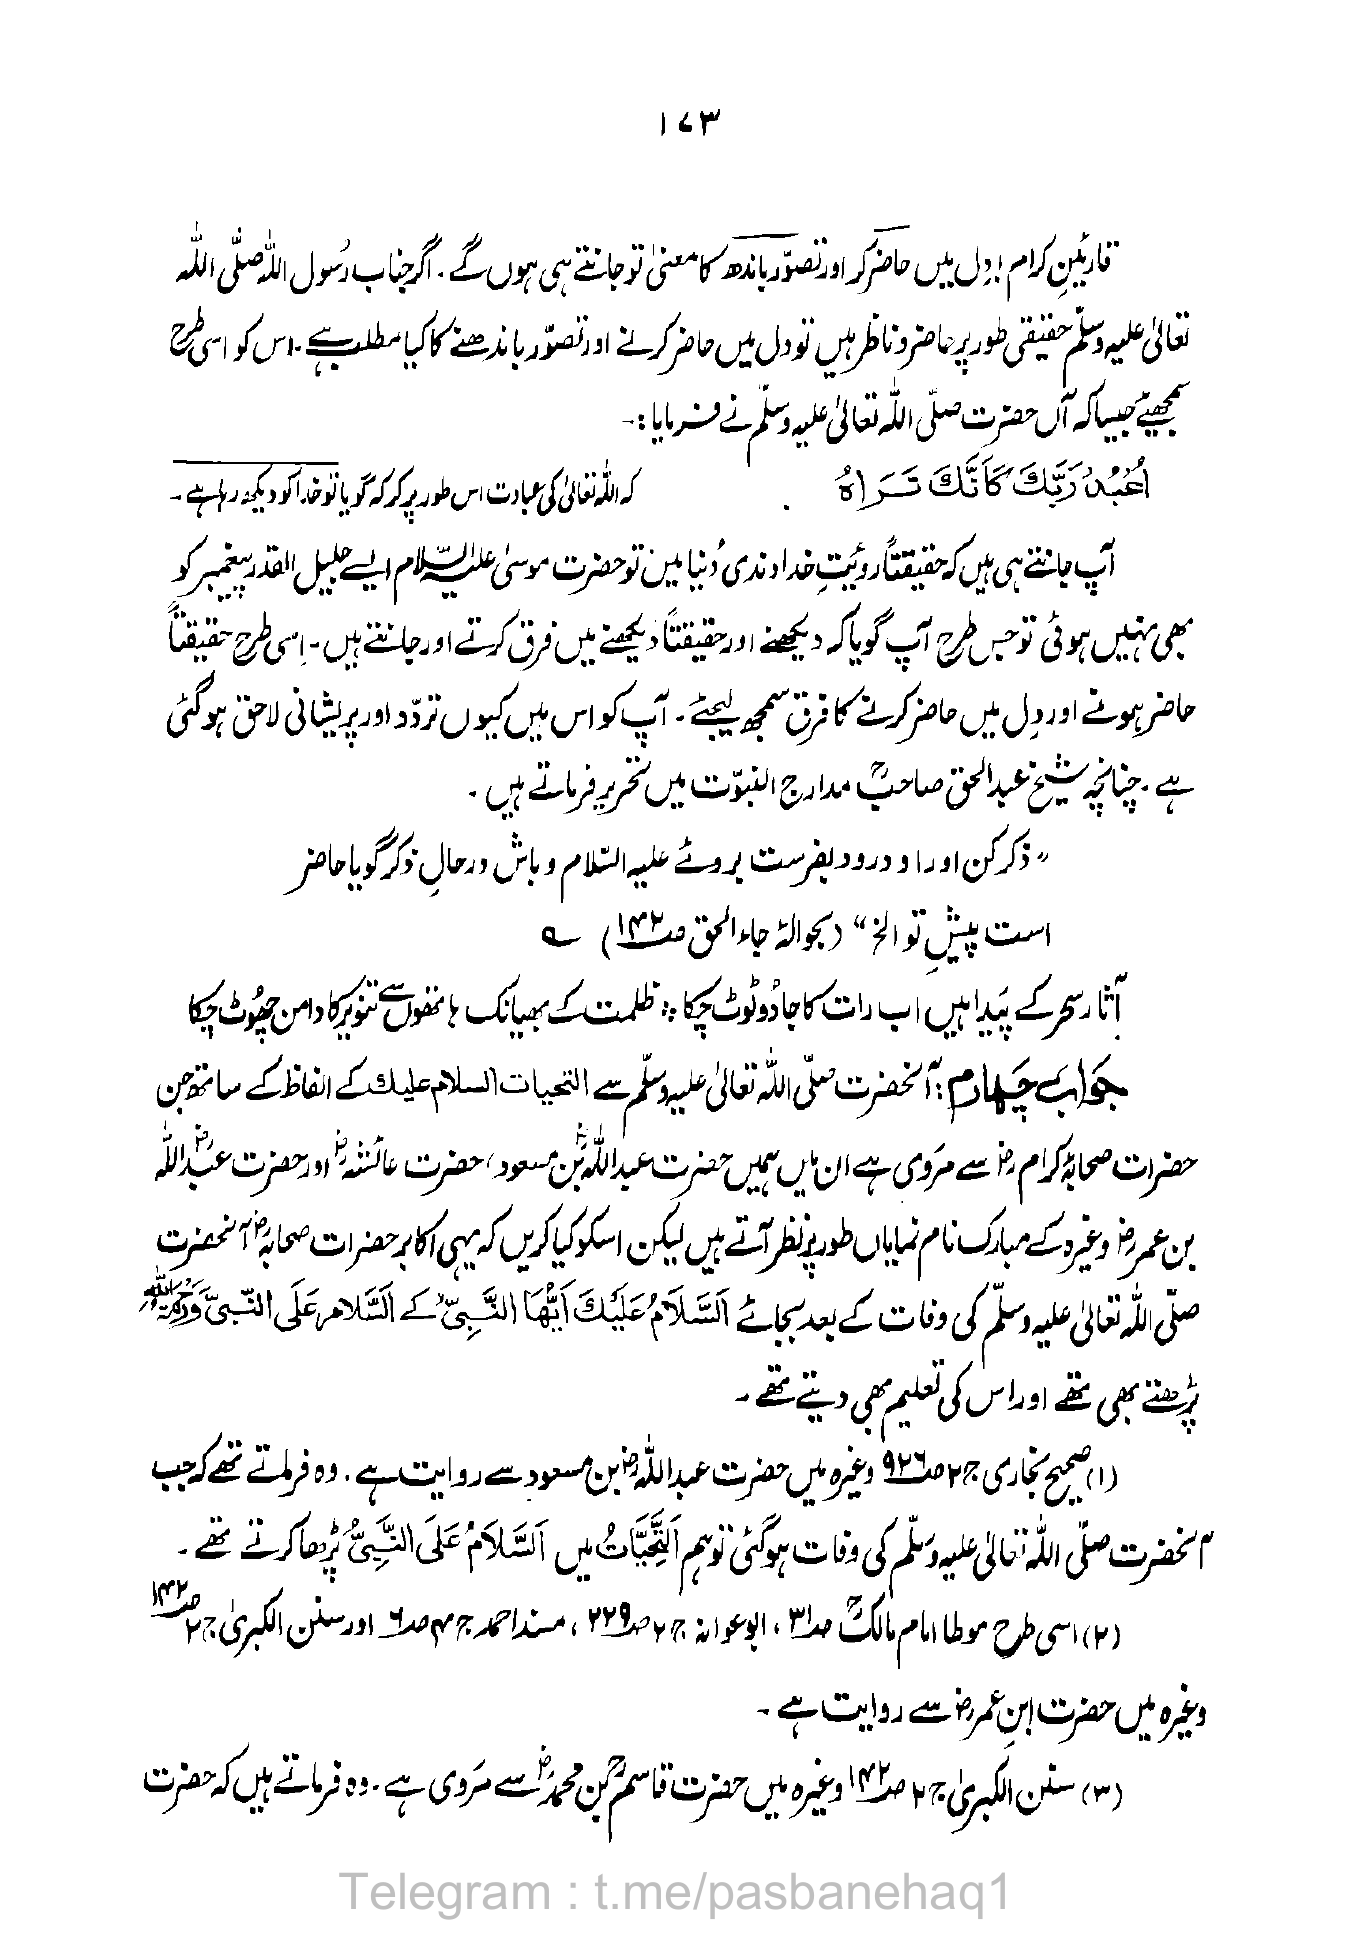 ۱۷۳
قارئینِ کرام! دِل میں حاضر کر اور تصوّر باندھ کا معنیٰ تو جانتے ہی ہوں گے۔ اگر جناب رسُول اللہ صلّی اللہ
تعالیٰ علیہ وسلّم حقیقی طور پر حاضر و ناظر ہیں تو دل میں حاضر کرنے اور تصوّر باندھنے کا کیا مطلب ہے۔ اس کو اسی طرح
سمجھیئے جیسا کہ آں حضرت صلّی اللہ تعالیٰ علیہ وسلّم نے فرمایا:۔
اُعْبُدْ رَبَّكَ كَاَنَّكَ تَرَاهُ
کہ اللہ تعالیٰ کی عبادت اس طور پر کر کہ گویا تو خدا کو دیکھ رہا ہے۔
آپ جانتے ہی ہیں کہ حقیقتاً رؤیتِ خداوندی دُنیا میں تو حضرت موسیٰ علیہ السّلام ایسے جلیل القدر پیغمبر کو
بھی نہیں ہوئی تو جس طرح آپ گویا کہ دیکھنے اور حقیقتاً دیکھنے میں فرق کرتے اور جانتے ہیں۔ اِسی طرح حقیقتاً
حاضر ہونے اور دِل میں حاضر کرنے کا فرق سمجھ لیجئے۔ آپ کو اس میں کیوں تردّد اور پریشانی لاحق ہوگئی
ہے۔ چنانچہ شیخ عبدالحق صاحبؒ مدارج النبوّت میں تحریر فرماتے ہیں۔
”ذکر کن اورا و درود بفرست بروئے علیہ السّلام و باش در حالِ ذکر گویا حاضر
است پیشِ تو الخ“ (بحوالۂ جاء الحق ص۱۴۲) ؎
آثار سحر کے پَیدا ہیں اب رات کا جادُو ٹوٹ چکا ؞ ظلمت کے بھیانک ہاتھوں سے تنویر کا دامن چھُوٹ چکا
جواب چہارم: آنحضرت صلّی اللہ تعالیٰ علیہ وسلّم سے التحیات السلام علیك کے الفاظ کے ساتھ جن
حضرات صحابۂ کرامؓ سے مَروی ہے ان میں ہمیں حضرت عبد اللہؓ بن مسعود، حضرت عائشہؓ اور حضرت عبدؓ اللہ
بن عمرؓ وغیرہ کے مبارک نام نمایاں طور پر نظر آتے ہیں لیکن اسکو کیا کریں کہ یہی اکابر حضرات صحابہؓ آنحضرت
صلّی اللہ تعالیٰ علیہ وسلّم کی وفات کے بعد بجائے اَلسَّلَامُ عَلَيْكَ اَيُّهَا النَّبِيُّ کے اَلسَّلَامُ عَلَى النَّبِيِّ وَرَحْمَةُ اللهِ
پڑھتے بھی تھے اور اس کی تعلیم بھی دیتے تھے۔
(۱) صحیح بخاری ج۲ ص۹۲۶ وغیرہ میں حضرت عبد اللہؓ بن مسعود سے روایت ہے۔ وہ فرماتے تھے کہ جب
آنحضرت صلّی اللہ تعالیٰ علیہ وسلّم کی وفات ہوگئی تو ہم اَلتَّحِيَّاتُ میں اَلسَّلَامُ عَلَى النَّبِيِّ پڑھا کرتے تھے۔
(۲) اسی طرح موطا امام مالکؒ ص۳۱، ابوعوانہ ج۲ ص۲۲۹، مسند احمد ج۴ ص۶ اور سنن الکبریٰ ج۲ ص۱۴۲
وغیرہ میں حضرت ابنِ عمرؓ سے روایت ہے۔
(۳) سنن الکبریٰ ج۲ ص۱۴۲ وغیرہ میں حضرت قاسمؒ بن محمدؓ سے مَروی ہے۔ وہ فرماتے ہیں کہ حضرت
Telegram : t.me/pasbanehaq1